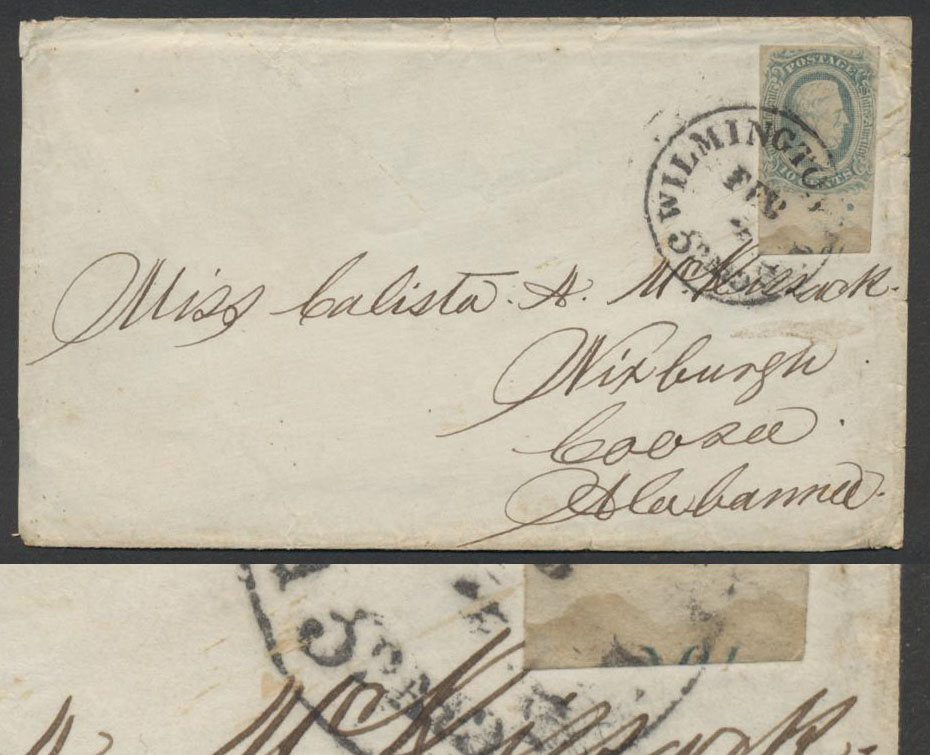 POSTAGE
10 CENTS
WILMINGTON
FEB
Miss Calista A. McKissack.
Wixburgh
Coosa
Alabama.